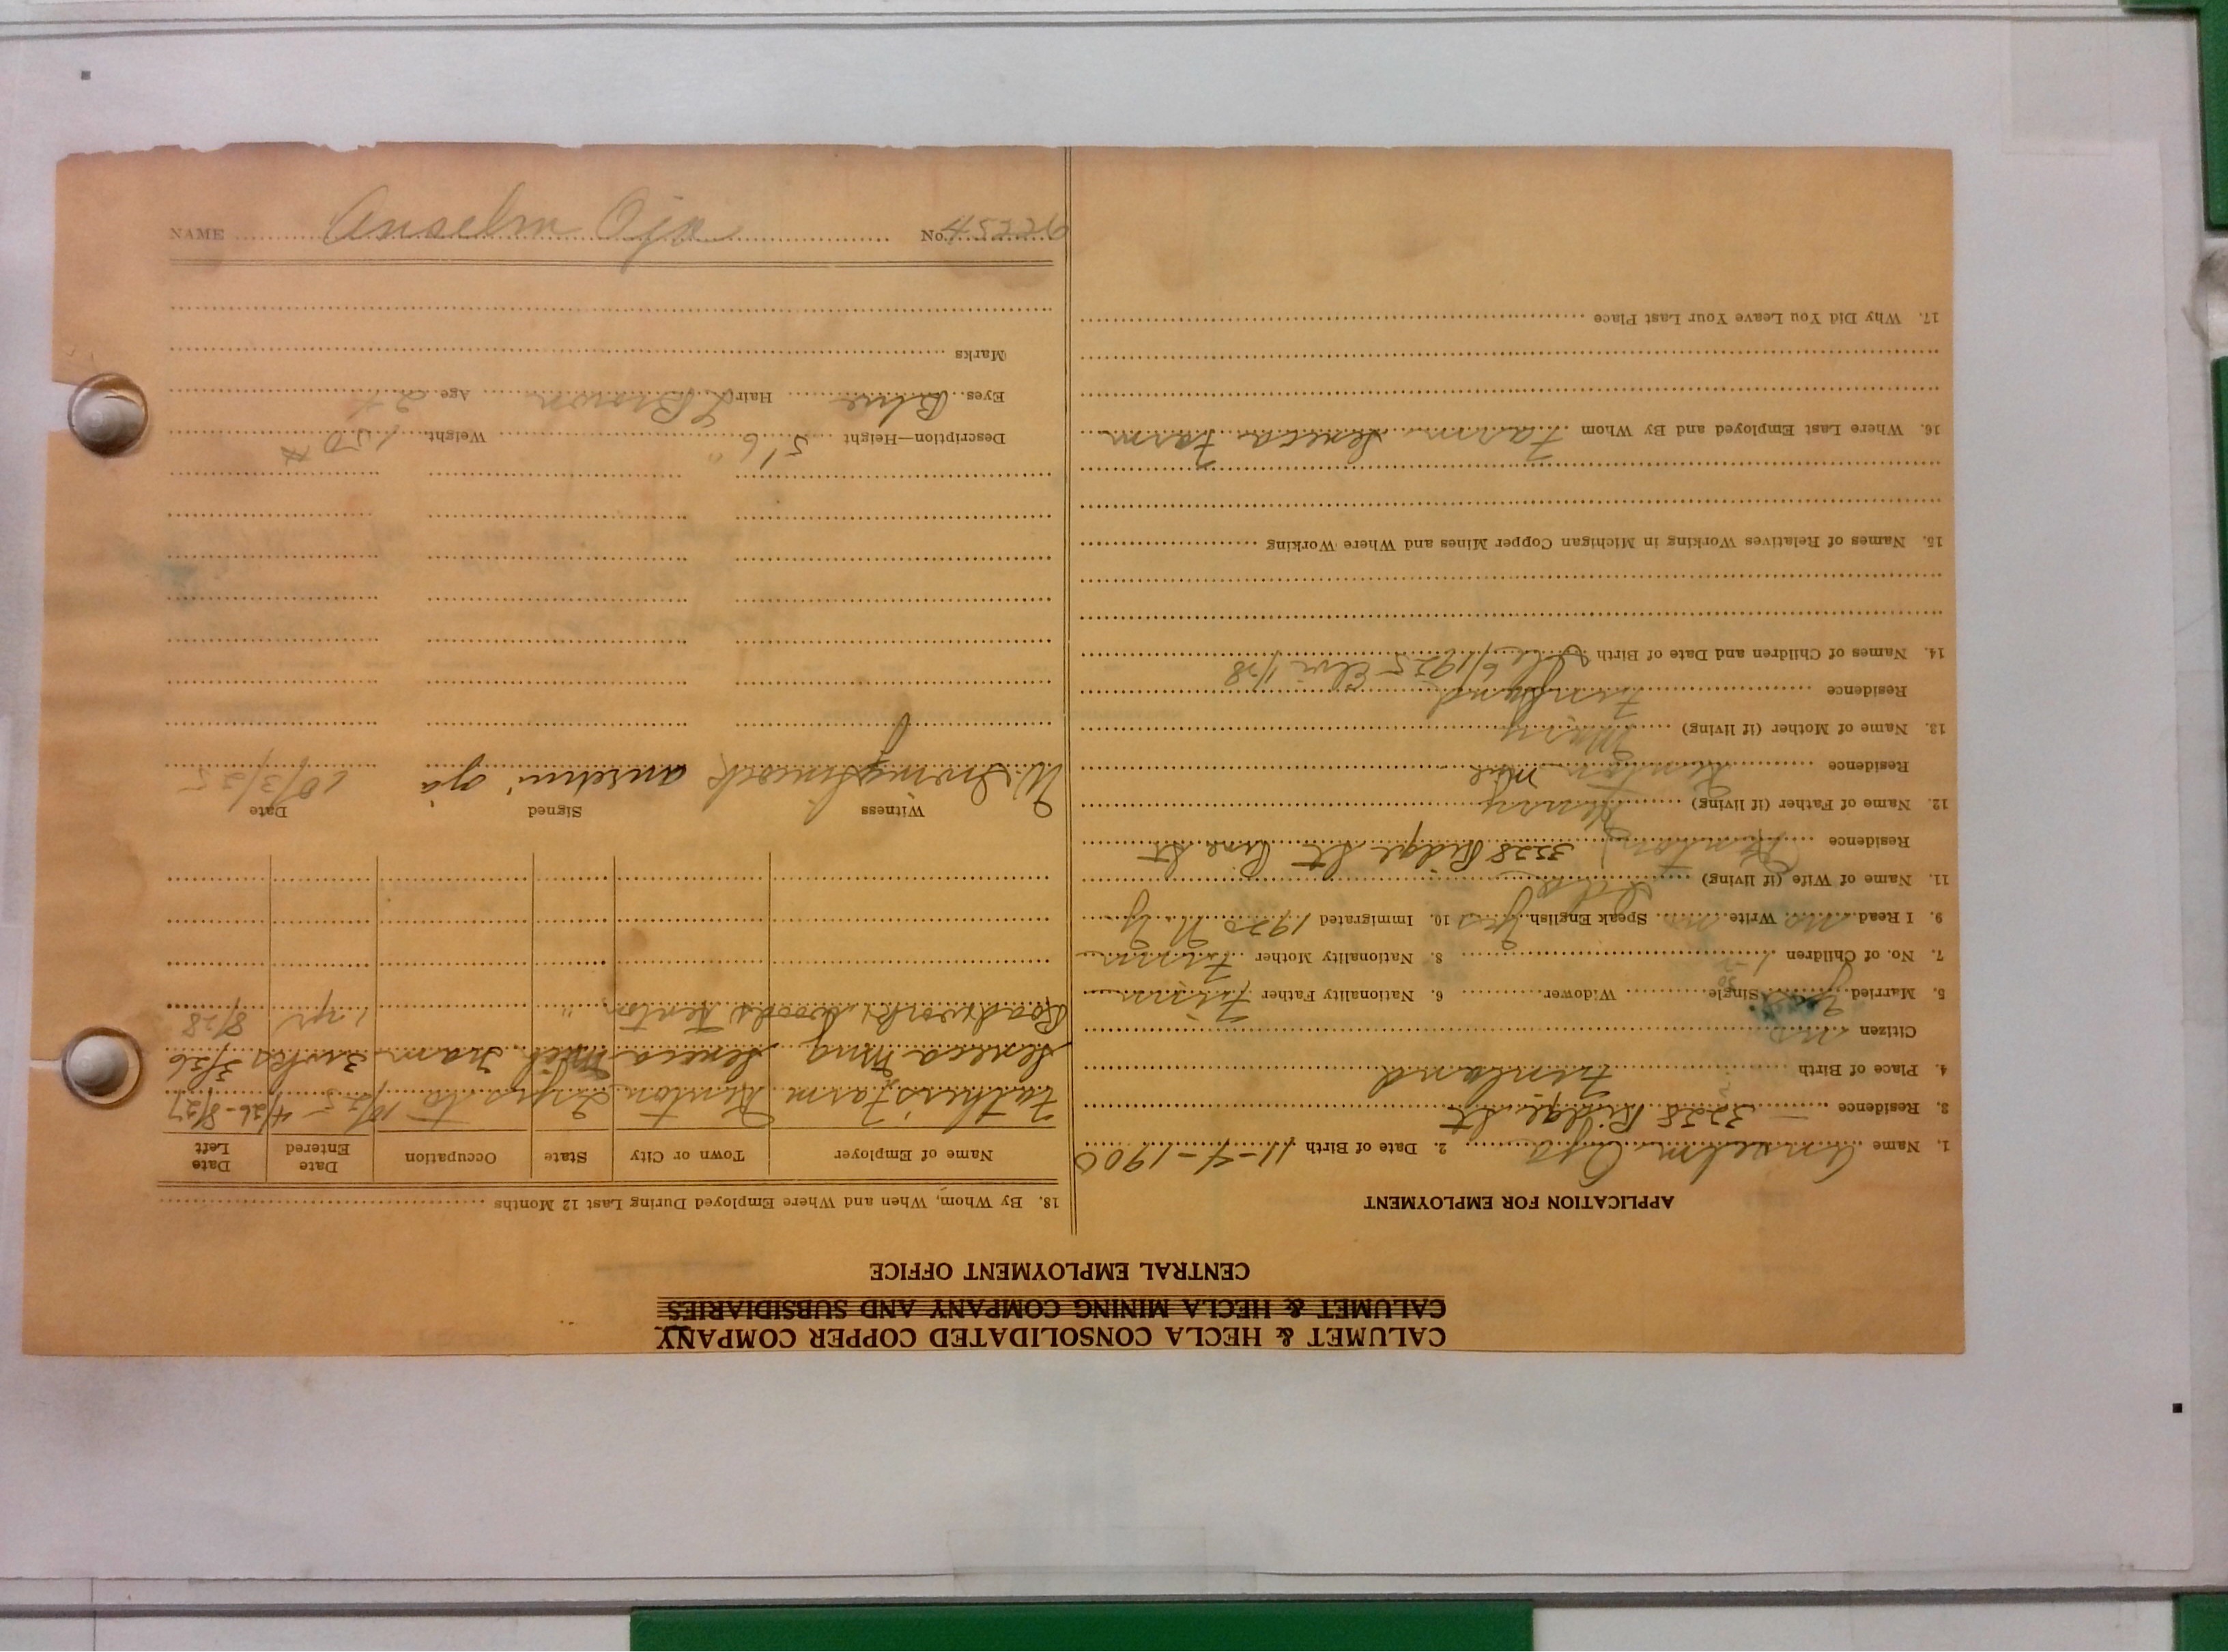 CALUMET & HECLA CONSOLIDATED COPPER COMPANY
CALUMET & HECLA MINING COMPANY AND SUBSIDIARIES
CENTRAL EMPLOYMENT OFFICE
APPLICATION FOR EMPLOYMENT
1. Name Anselm Oja 2. Date of Birth 11-4-1900
3. Residence 3228 Ridge St
4. Place of Birth Finland
Citizen no
5. Married Single Widower 6. Nationality Father Finn
7. No. of Children 1 8. Nationality Mother Finn
9. I Read no Write no Speak English yes 10. Immigrated 1920 N.Y
11. Name of Wife (if living) Ida
Residence Kenton 3228 Ridge St Pine St
12. Name of Father (if living) Henry
Residence Kenton Mich
13. Name of Mother (if living) Mary
Residence Finland
14. Names of Children and Date of Birth 6/1925 Elvi 1/28
15. Names of Relatives Working in Michigan Copper Mines and Where Working
16. Where Last Employed and By Whom Farm Seneca Farm
17. Why Did You Leave Your Last Place
18. By Whom, When and Where Employed During Last 12 Months
Name of Employer Town or City State Occupation Date Entered Date Left
Father's Farm Kenton 2 yrs to 10/25 4/26-8/27
Seneca Mng Seneca Mich Tram 2 wks 3/26
Road work, woods Kenton " 1 yr 8/28
Witness Signed Date
anselmi oja 10/3/25
Description—Height 5' 6" Weight 150 #
Eyes Blue Hair L Brown Age 24
Marks
NAME Anselm Oja No. 45226